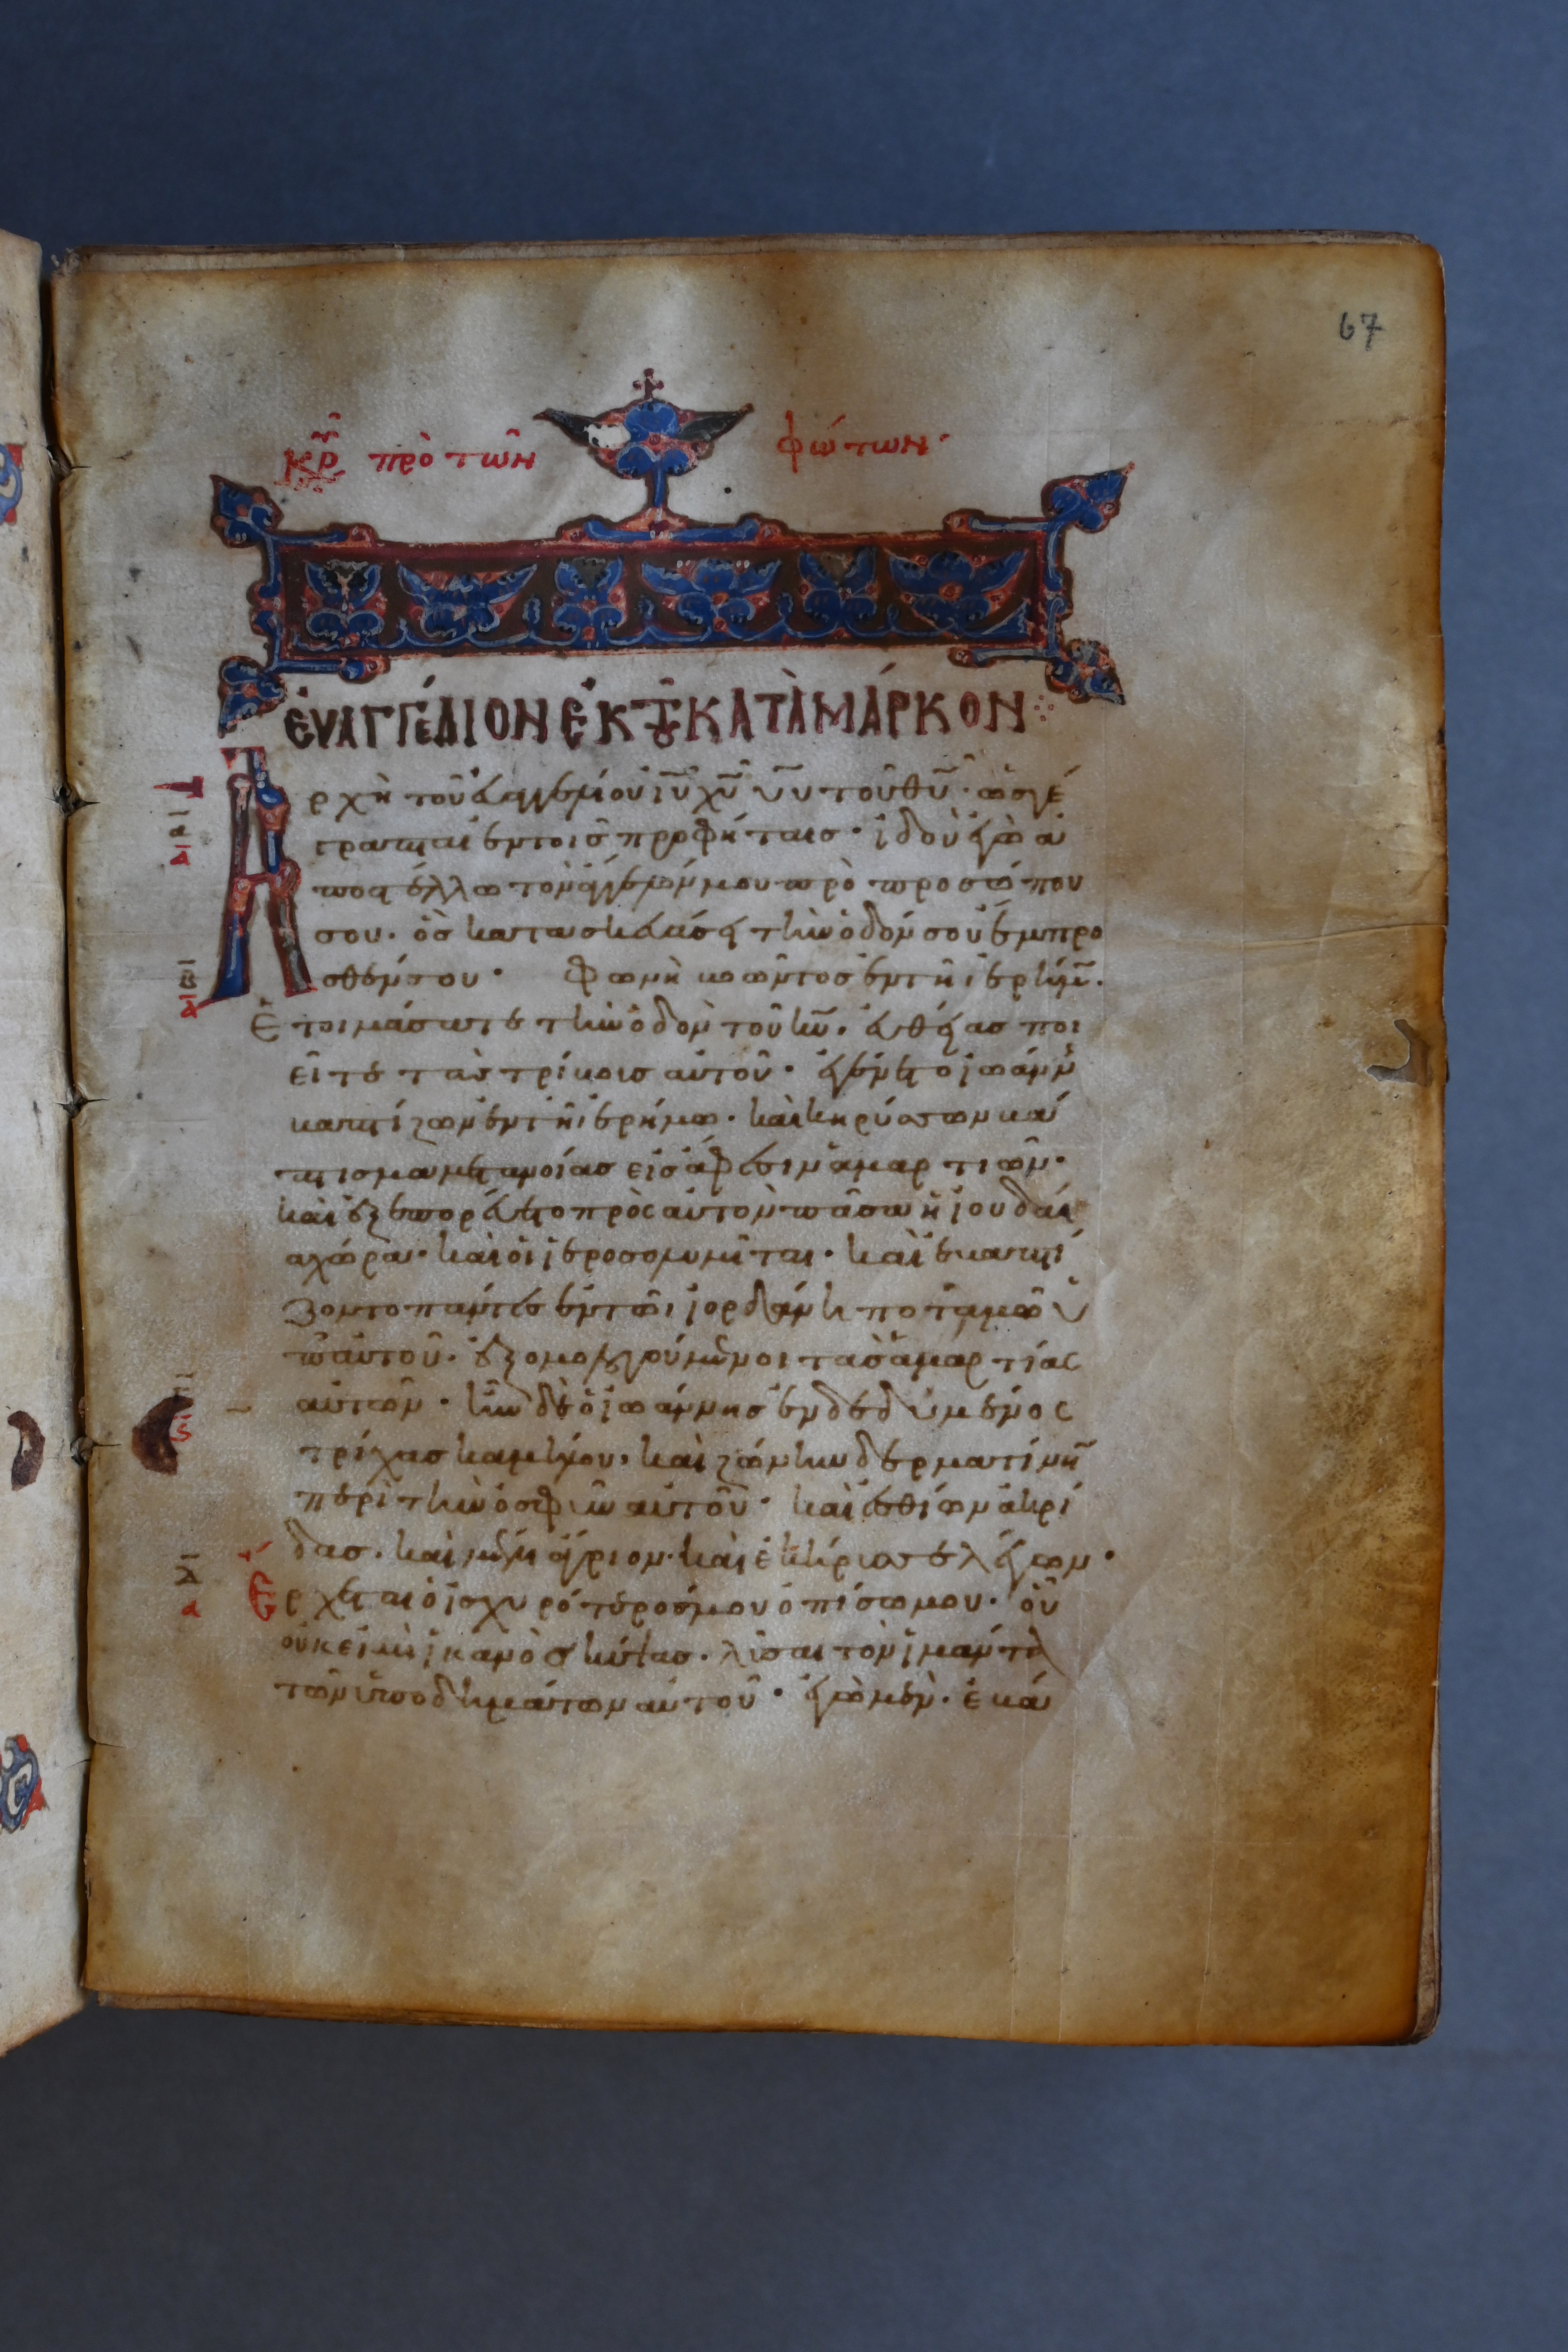 67
κυρ πρὸ τῶν φώτων·
ἐυαγγέλιον ἐκ τοῦ κατὰ μάρκον
Αρχὴ τοῦ ἐυαγγελίου ἰῡ χῡ ῡῡ τοῦ θῡ· ὡς γέ
γραπται ἐν τοῖς προφήταις· ἰδοὺ ἐγὼ ἀ
ποστέλλω τὸν ἄγγελόν μου πρὸ προσώπου
σου· ὃς κατασκευάσει τὴν ὁδόν σου ἔμπρο
σθέν σου· Φωνὴ βοῶντος ἐν τῆ ἐρήμ·
Ἑτοιμάσατε τὴν ὁδὸν τοῦ κῡ· ἐυθείας ποι
εῖτε τὰς τρίβους αὐτοῦ· ἐγένετο ἰωάνν
βαπτίζων ἐν τῆ ἐρήμω· καὶ κηρύσσων βά
πτισμα μετανοίας εἰς ἄφεσιν ἁμαρτιῶν·
καὶ ἐξεπορεύετο πρὸς αὐτὸν πᾶσα ἡ ἰουδαί
α χώρα· καὶ οἱ ἱεροσολυμῖται· καὶ ἐβαπτί
ζοντο πάντες ἐν τῶ ἰορδάνη ποταμῶ ὑ
π αὐτοῦ· ἐξομολογούμενοι τὰς ἁμαρτίας
αὐτῶν· ἦν δὲ ὁ ἰωάννης ἐνδεδυμένος
τρίχας καμήλου· καὶ ζώνην δερματίνη
περὶ τὴν ὀσφὺν αὐτοῦ· καὶ ἐσθίων ἀκρί
δας· καὶ μέλι ἄγριον· καὶ ἐκήρυσσε λέγων·
Ερχεται ὁ ἰσχυρότερός μου ὀπίσω μου· οὗ
οὐκ εἰμὶ ἱκανὸς κύψας· λῦσαι τὸν ἱμάντα
τῶν ὑποδημάτων αὐτοῦ· ἐγὼ μὲν· ἐβά